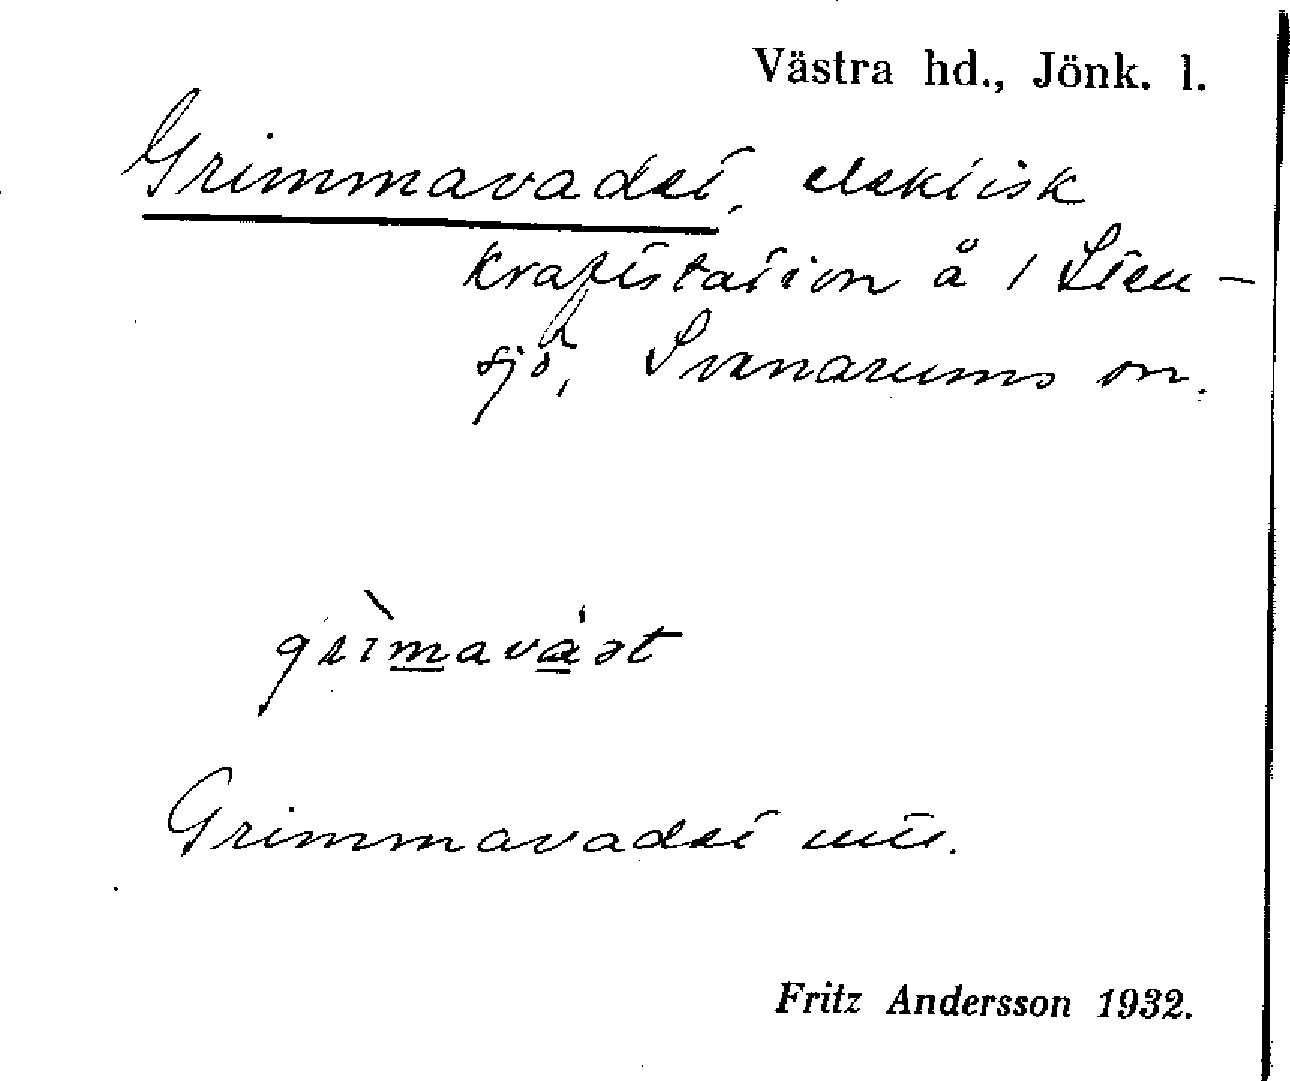 Västra hd., Jönk. l.
Grimmavadet, elektrisk
kraftstation å 1 Sten-
sjö, Svenarums sn.
grìmaváət
Grimmavadet utt.
Fritz Andersson 1932.